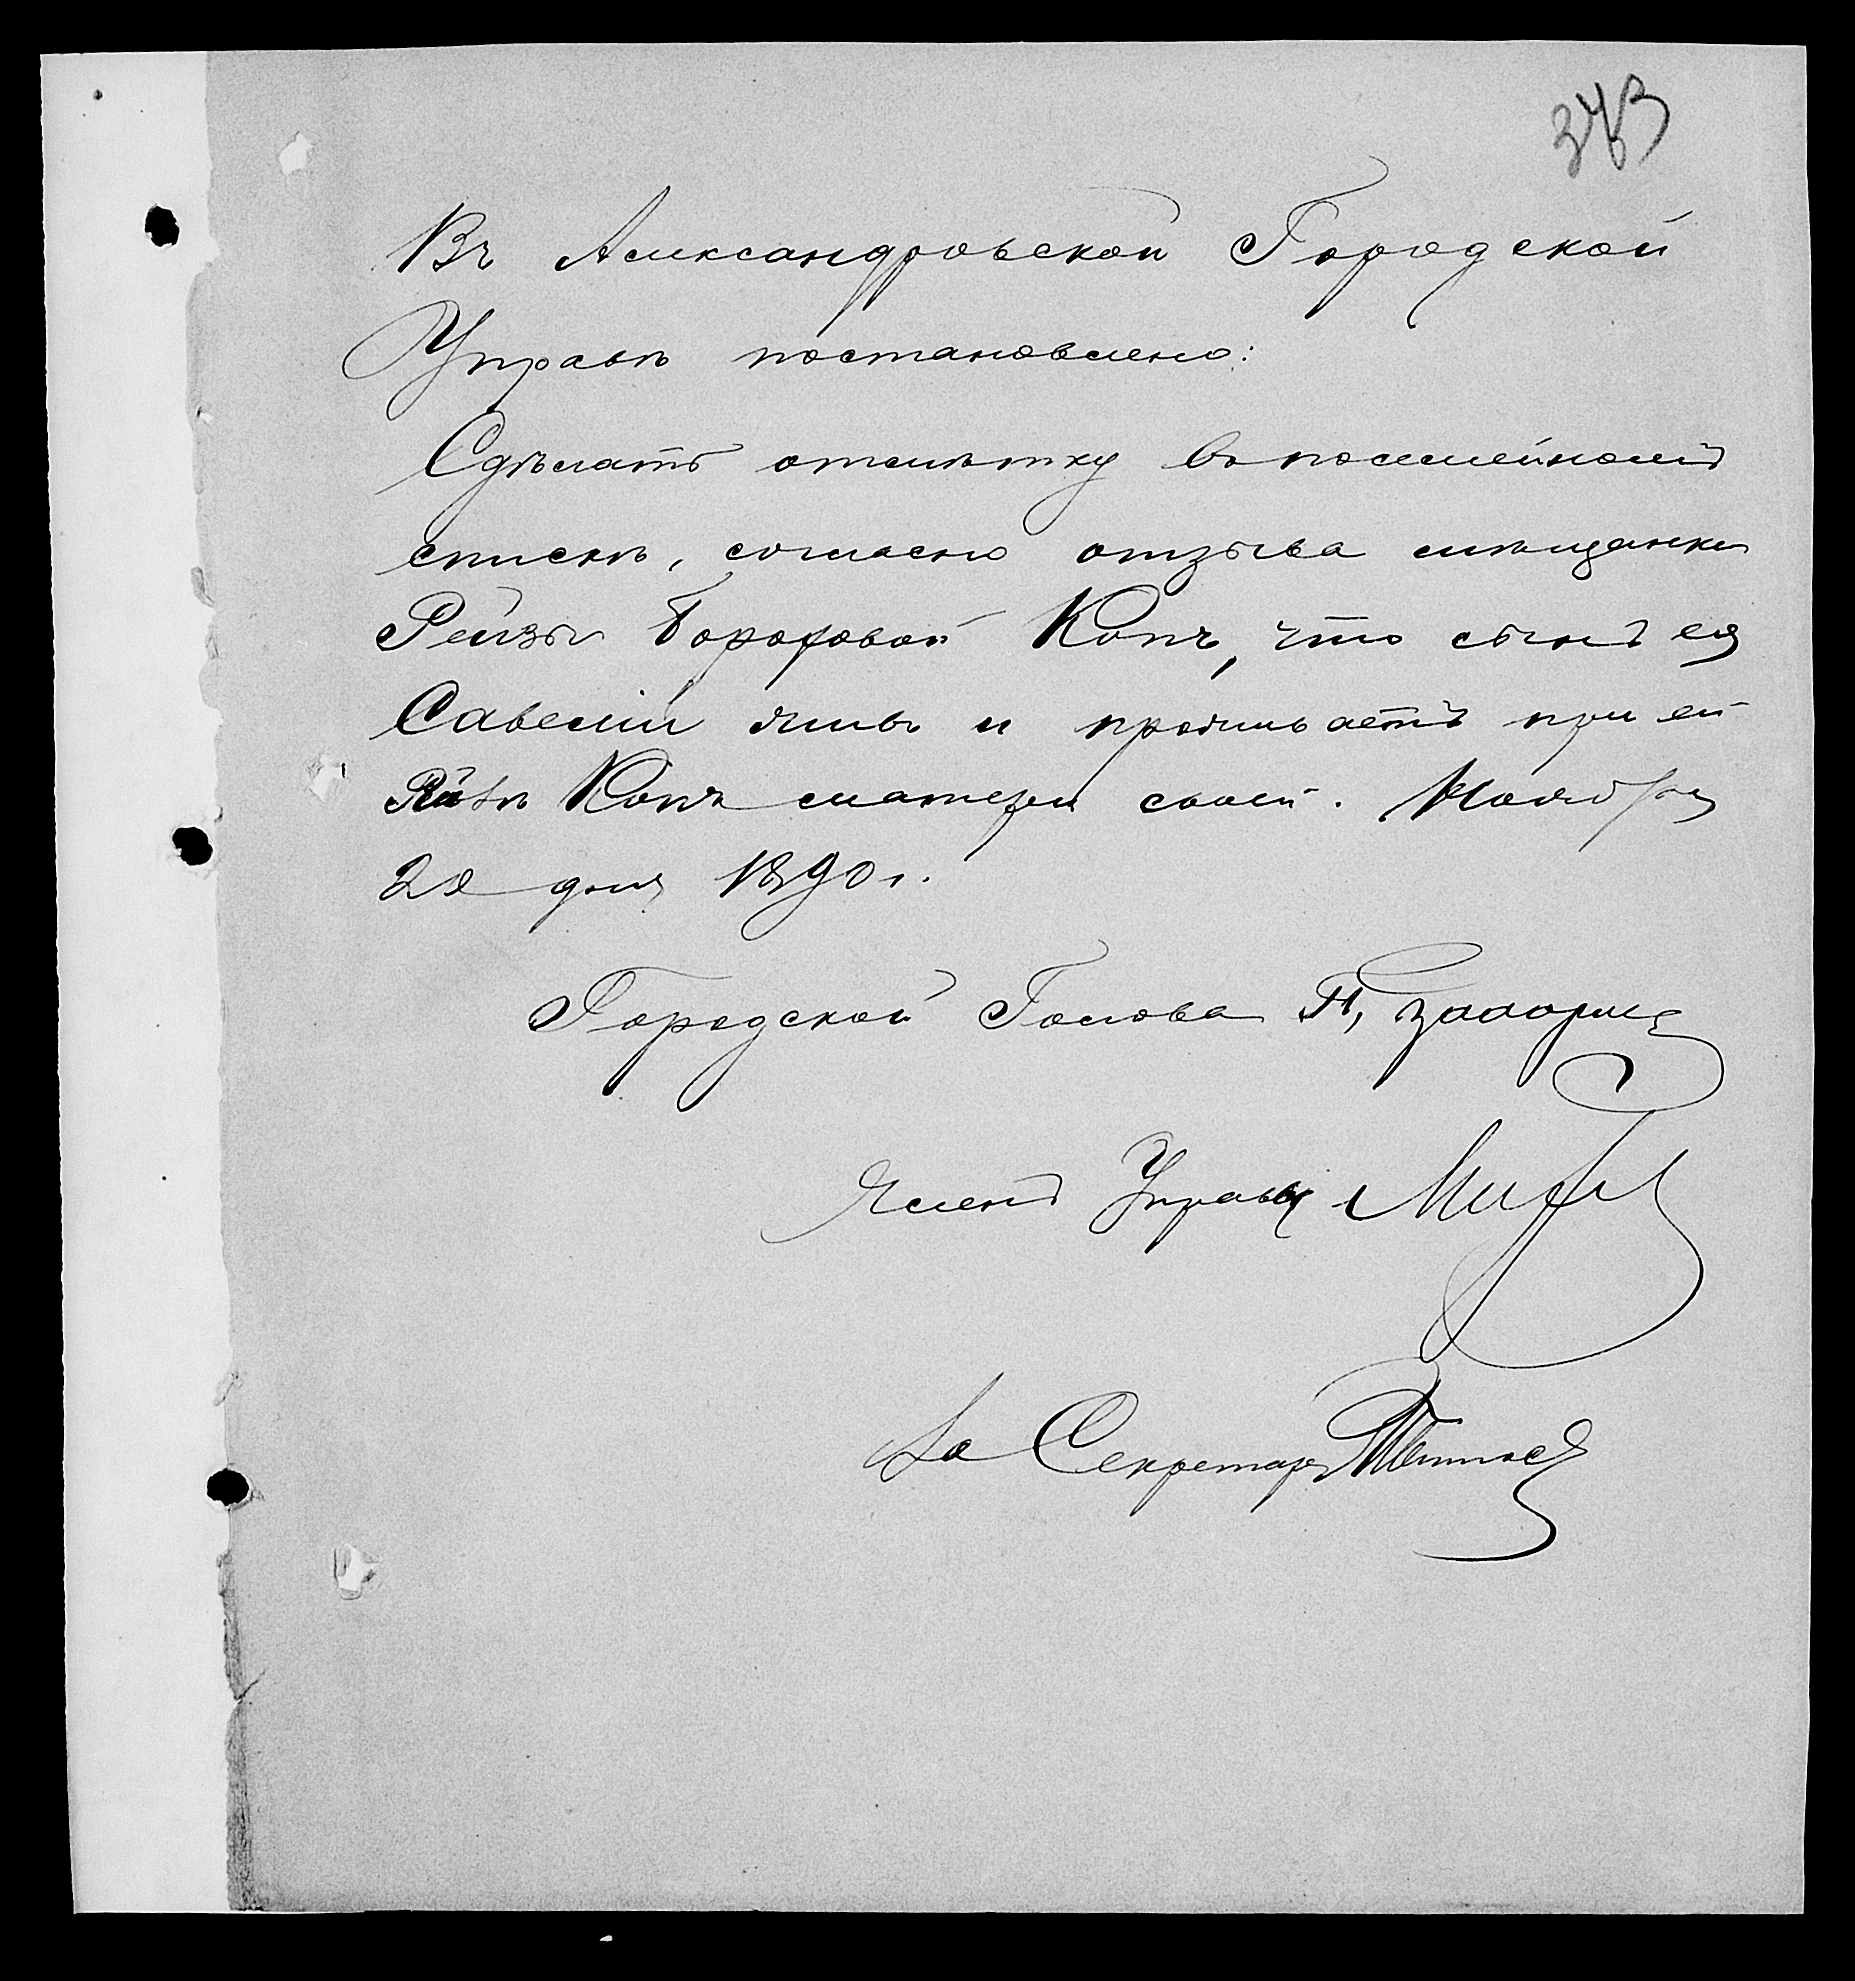 373
Въ Александровской Городской
Управѣ постановлено:
Сдѣлать отмѣтку въ посемейномъ
спискѣ, согласно отзыва мѣщанки
Рейзы Бороховой Копъ, что сынъ ея
Савелій живъ и проживаетъ при ей
Копъ матери своей. Ноября
22 дня 1890 г.
Городской Голова
Членъ Управы
За Секретаря